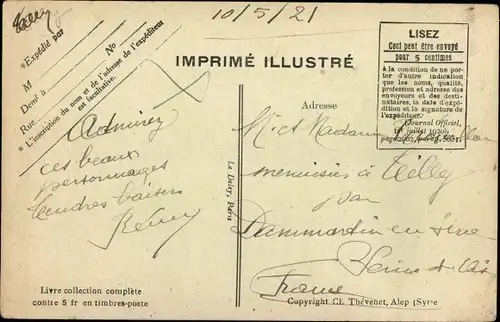 10/5/21
Tilly
*Expédié par
M No
Demt à
Rue
* L'inscription du nom et de l'adresse de l'expéditeur
est facultative.
IMPRIMÉ ILLUSTRÉ
LISEZ
Ceci peut être envoyé
pour 5 centimes
A la condition de ne por-
ter d'autre indication
que les noms, qualité,
profession et adresse des
envoyeurs et des desti-
nataires, la date d'expé-
dition et la signature de
l'expéditeur.
Journal Officiel,
1er juillet 1920,
Admirez
ces beaux
personnages
tendres baisers
Rémy
Le Deley, Paris
Adresse
M. et Madame
menuisier à Tilly
par
Dammartin en Serve
Seine et Oise
France
Livre collection complète
contre 5 fr en timbres-poste
Copyright Cl. Thévenet, Alep (Syrie